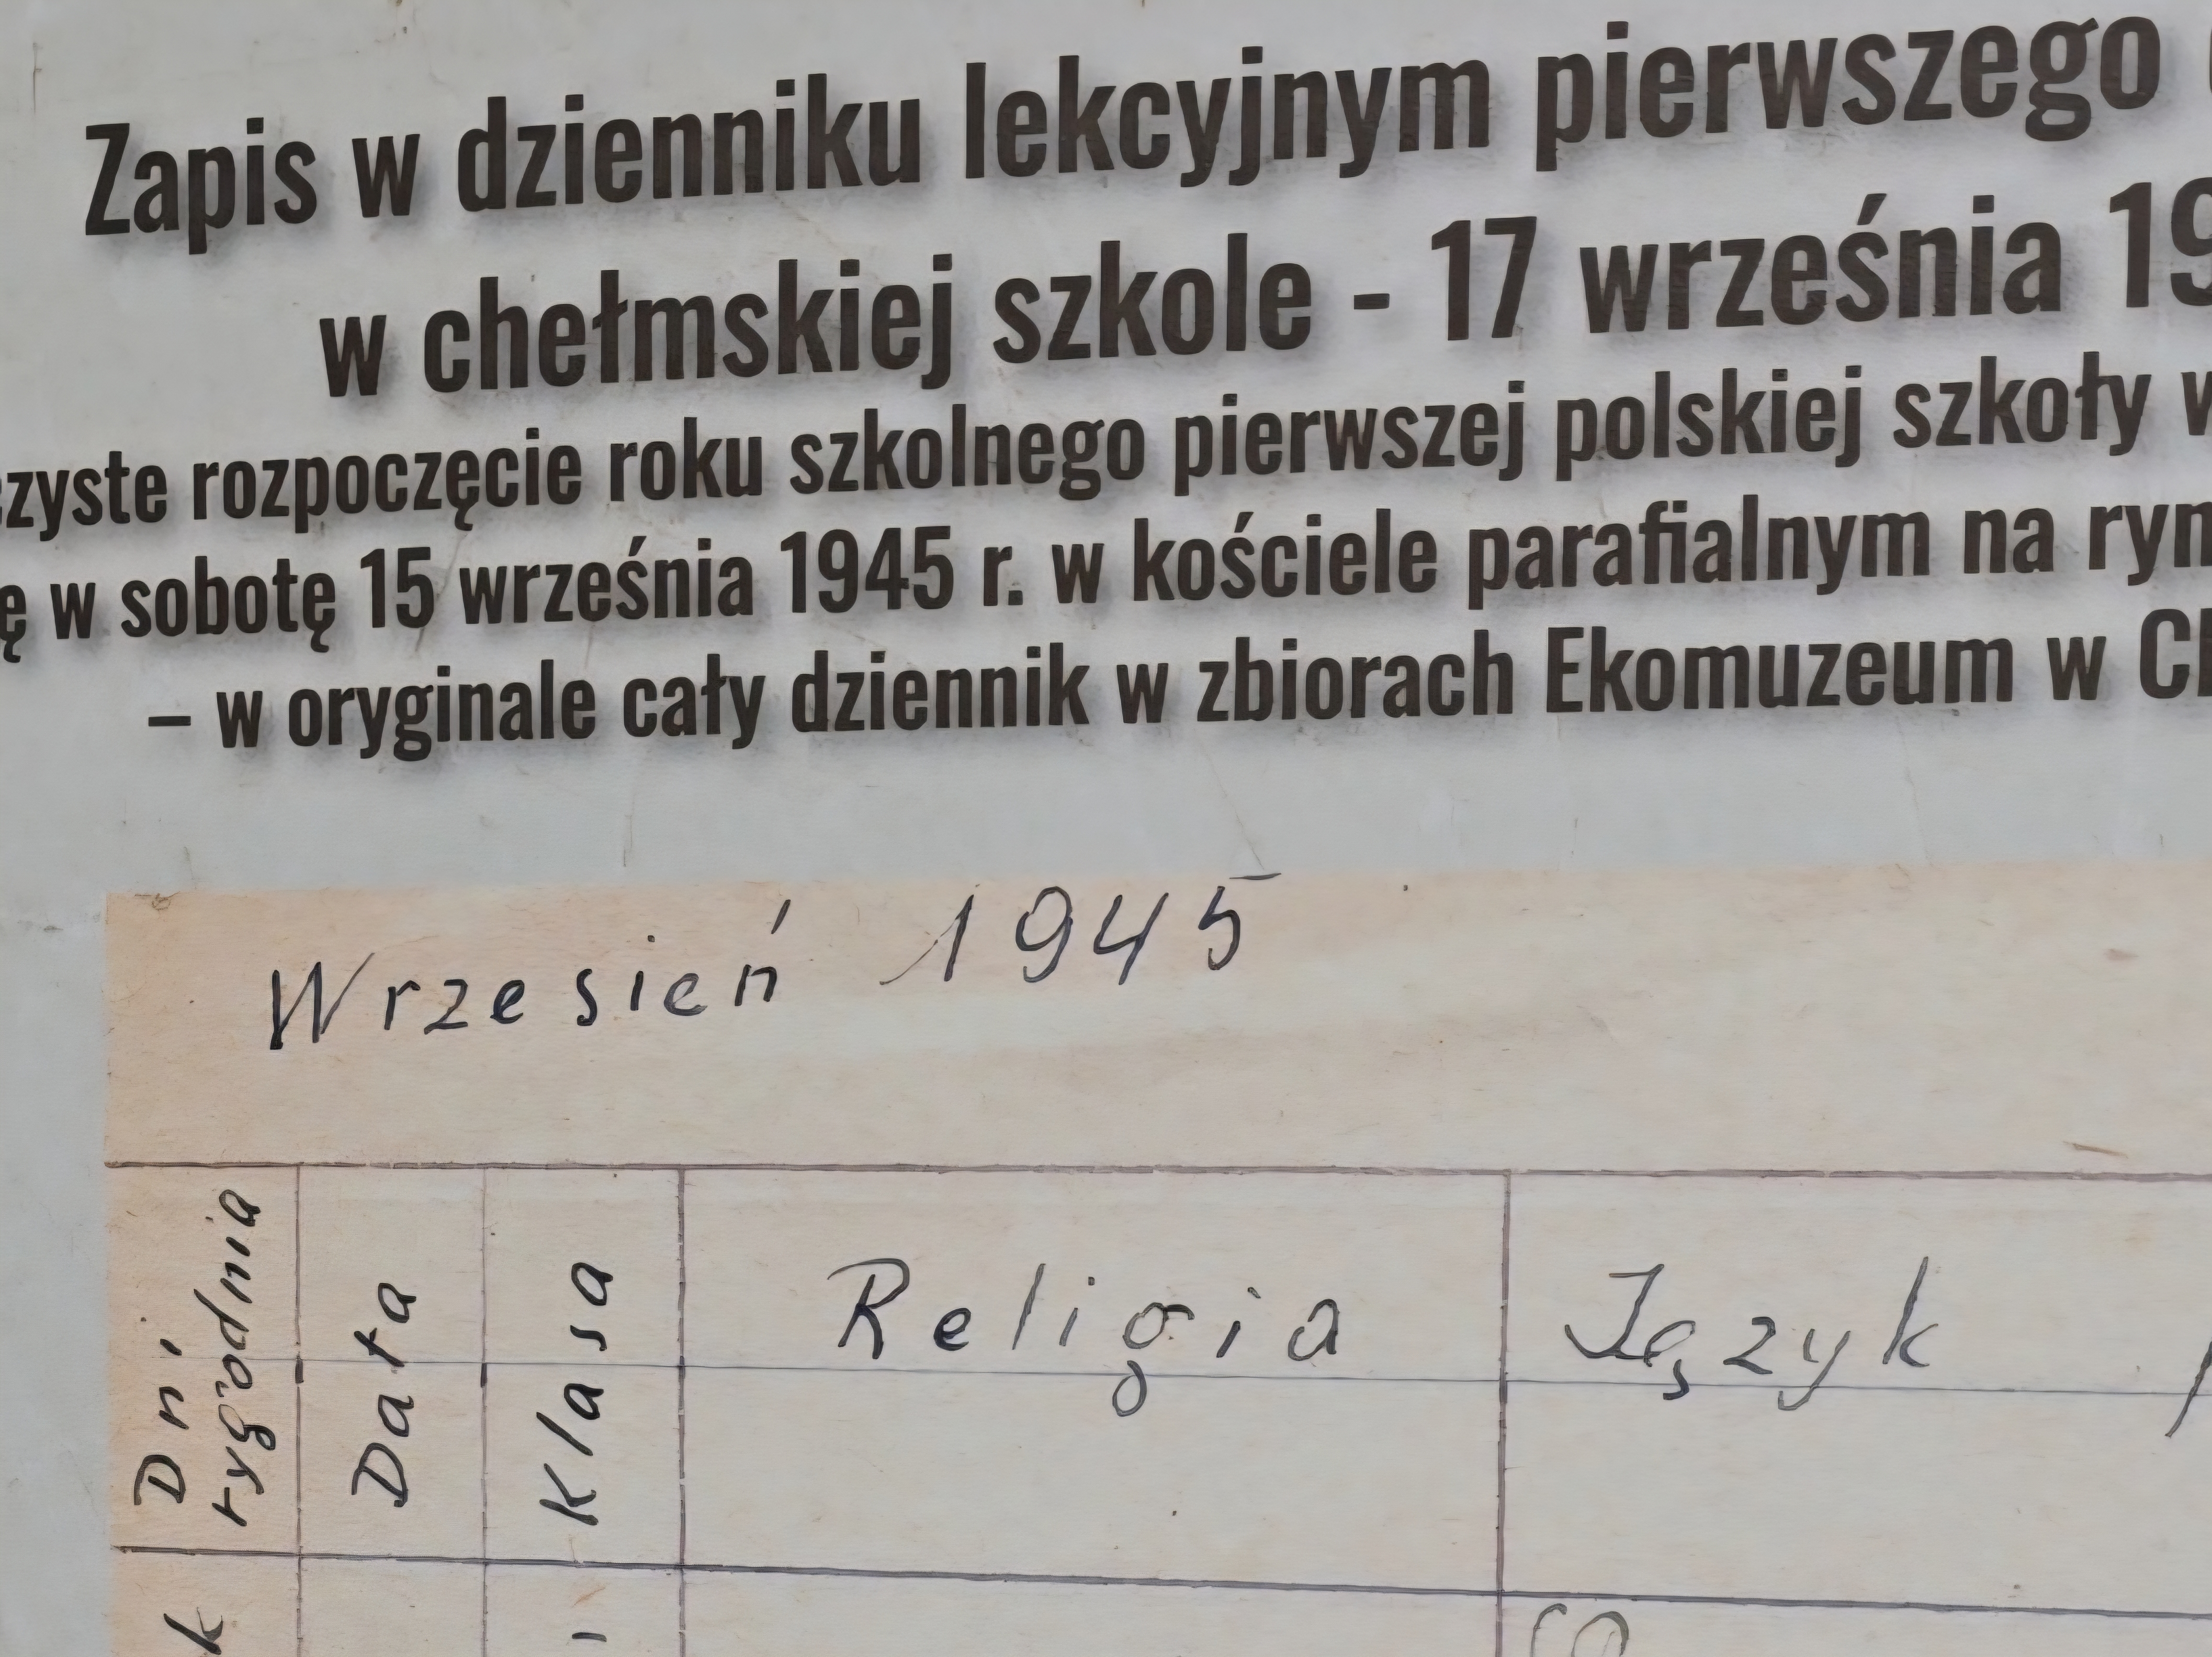 Zapis w dzienniku lekcyjnym pierwszego
w chełmskiej szkole - 17 września 19
rozpoczęcie roku szkolnego pierwszej polskiej szkoły
w sobotę 15 września 1945 r. w kościele parafialnym na
– w oryginale cały dziennik w zbiorach Ekomuzeum w
Wrzesień 1945
Dni
tygodnia
Data
Klasa
Religia
Język